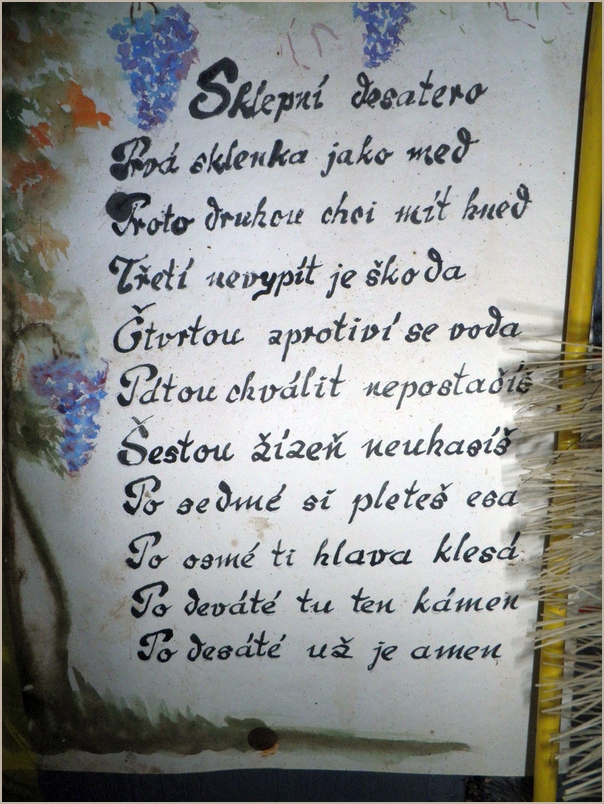 Sklepní desatero
Prvá sklenka jako med
Proto druhou chci mít hned
Třetí nevypít je škoda
Čtvrtou zprotiví se voda
Pátou chválit nepostačíš
Šestou žízeň neuhasíš
Po sedmé si pleteš esa
Po osmé ti hlava klesá
Po deváté tu ten kámen
Po desáté už je amen